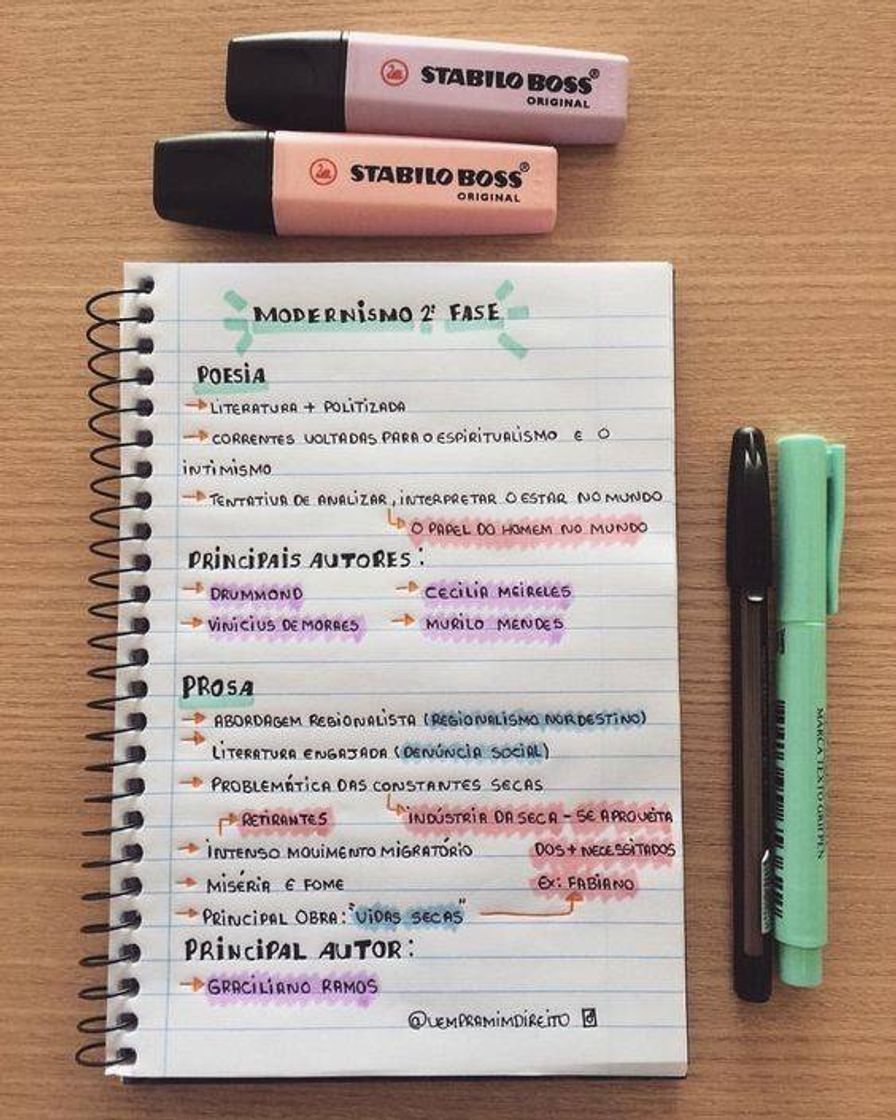 STABILO BOSS®
ORIGINAL
STABILO BOSS®
ORIGINAL
MODERNISMO 2ª FASE
POESIA
→ LITERATURA + POLITIZADA
→ CORRENTES VOLTADAS PARA O ESPIRITUALISMO E O
INTIMISMO
→ TENTATIVA DE ANALIZAR, INTERPRETAR O ESTAR NO MUNDO
↳ O PAPEL DO HOMEM NO MUNDO
PRINCIPAIS AUTORES:
→ DRUMMOND → CECILIA MEIRELES
→ VINICIUS DE MORAES → MURILO MENDES
PROSA
→ ABORDAGEM REGIONALISTA (REGIONALISMO NORDESTINO)
→ LITERATURA ENGAJADA (DENÚNCIA SOCIAL)
→ PROBLEMÁTICA DAS CONSTANTES SECAS
RETIRANTES ↳ INDÚSTRIA DA SECA - SE APROVEITA
→ INTENSO MOVIMENTO MIGRATÓRIO DOS + NECESSITADOS
→ MISÉRIA E FOME EX: FABIANO
→ PRINCIPAL OBRA: "VIDAS SECAS"
PRINCIPAL AUTOR:
→ GRACILIANO RAMOS
@VEMPRAMIMDIREITO
MARCA TEXTO GRIFPEN